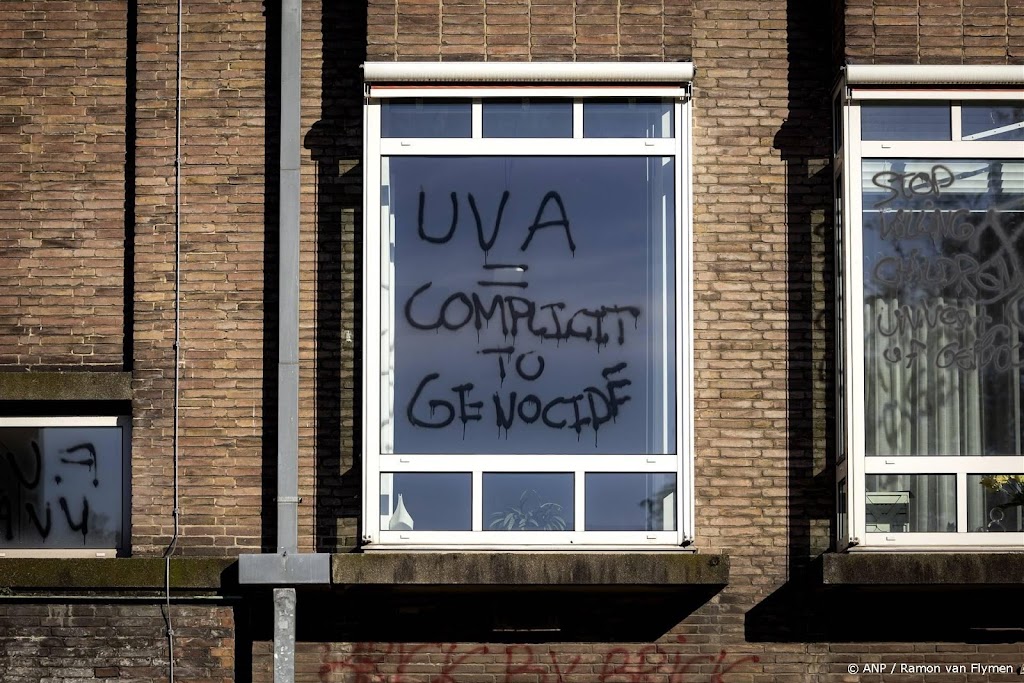 UVA
=
COMPLICIT
TO
GENOCIDE
STOP
KILLING
CHILDREN
OF GENOCI
BRICK BY BRICK
© ANP / Ramon van Flymen